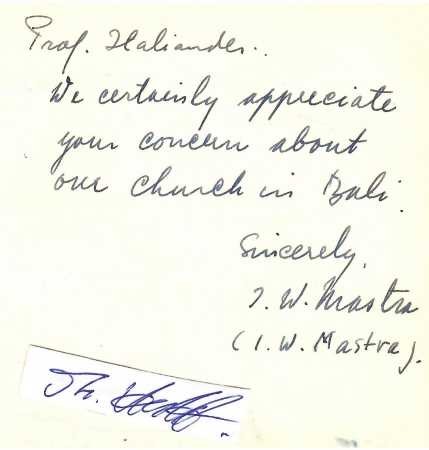 Prof. Italiander..
We certainly appreciate
your concern about
our church in Bali.
Sincerely,
I. W. Mastra
(I. W. Mastra).
Th.